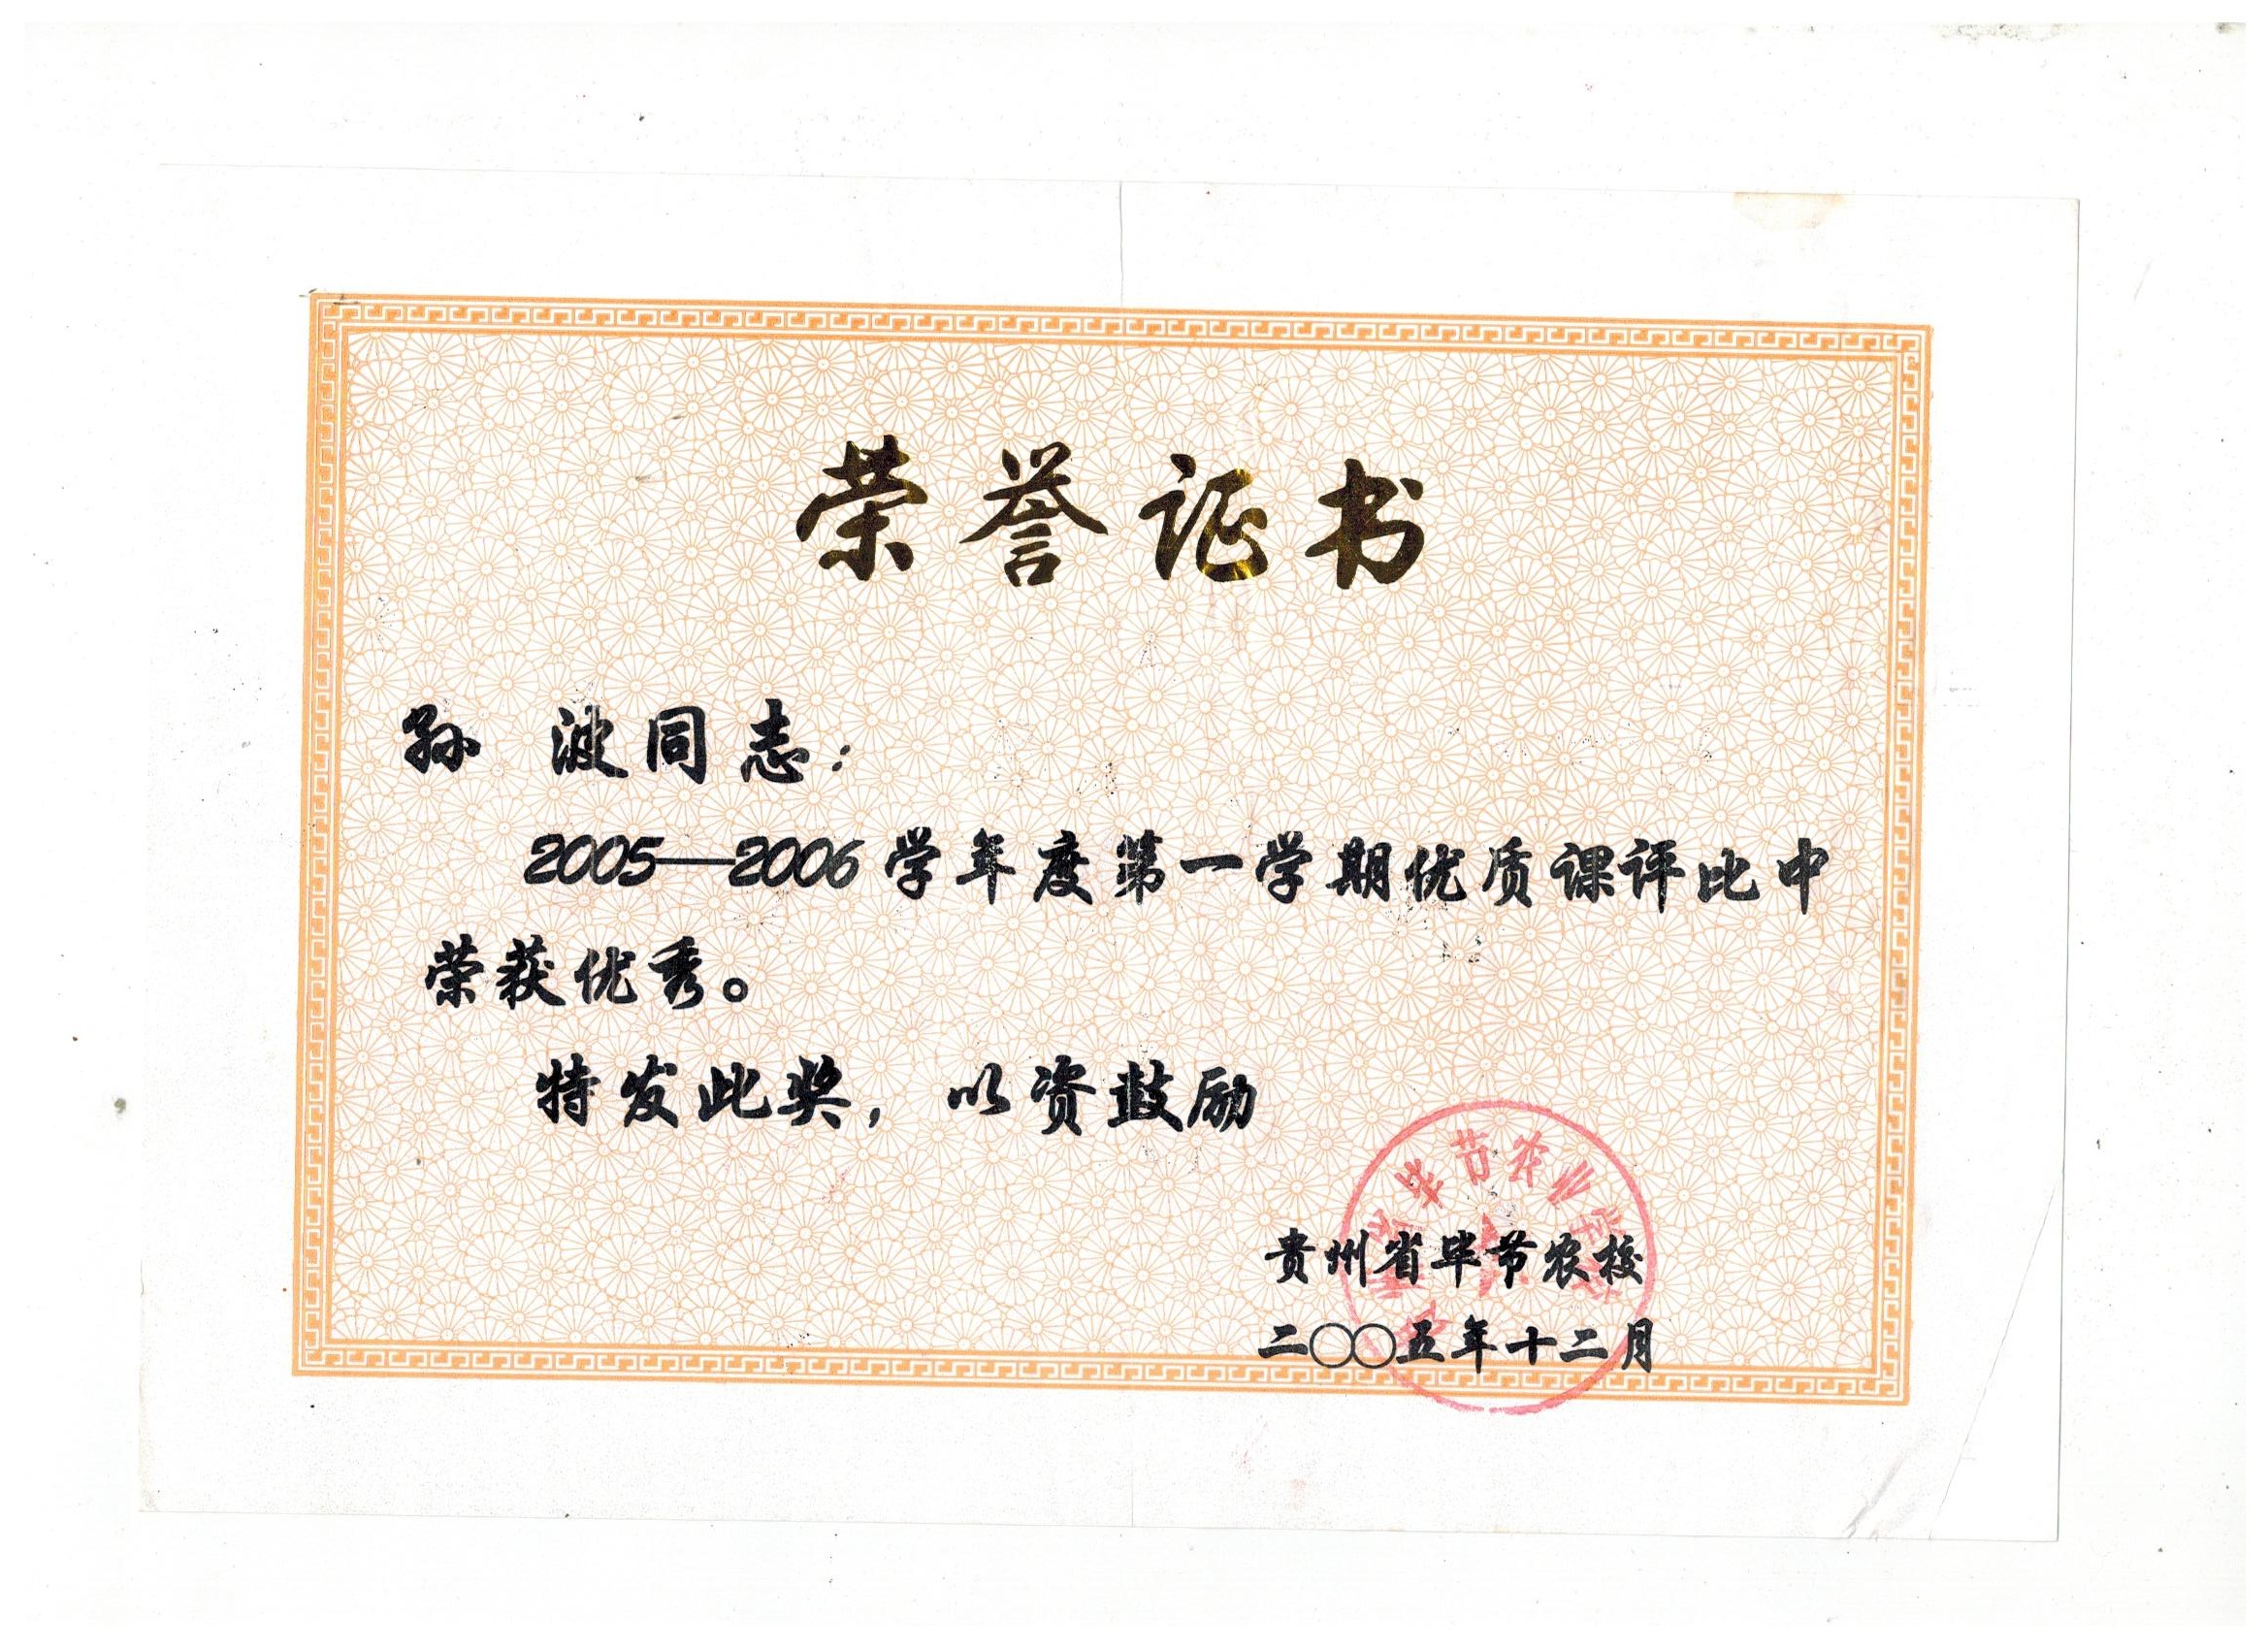 荣誉证书
孙 波同志：
2005—2006学年度第一学期优质课评比中
荣获优秀。
特发此奖，以资鼓励
贵州省毕节农业学校
贵州省毕节农校
二〇〇五年十二月